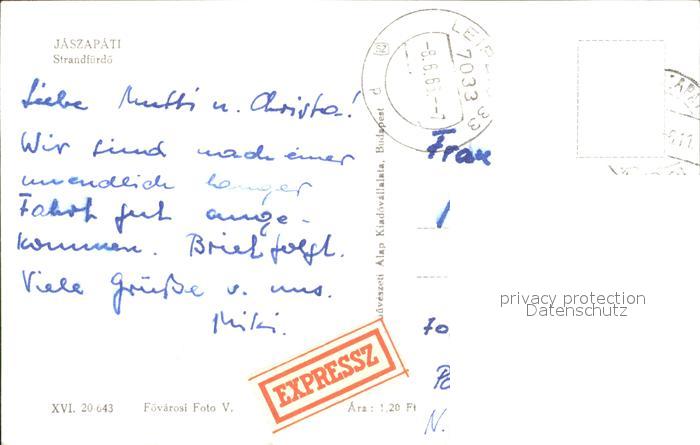 JÁSZAPÁTI
Strandfürdő
Liebe Mutti u. Christa!
Wir sind nach einer
unendlich langer
Fahrt gut ange-
kommen. Brief folgt.
Viele Grüße v. uns.
Miki.
EXPRESSZ
XVI. 20 643 Fővárosi Foto V. Ára: 1,20 Ft
Művészeti Alap Kiadóvállalata, Budapest
7033
Frau
privacy protection
Datenschutz
70
N.